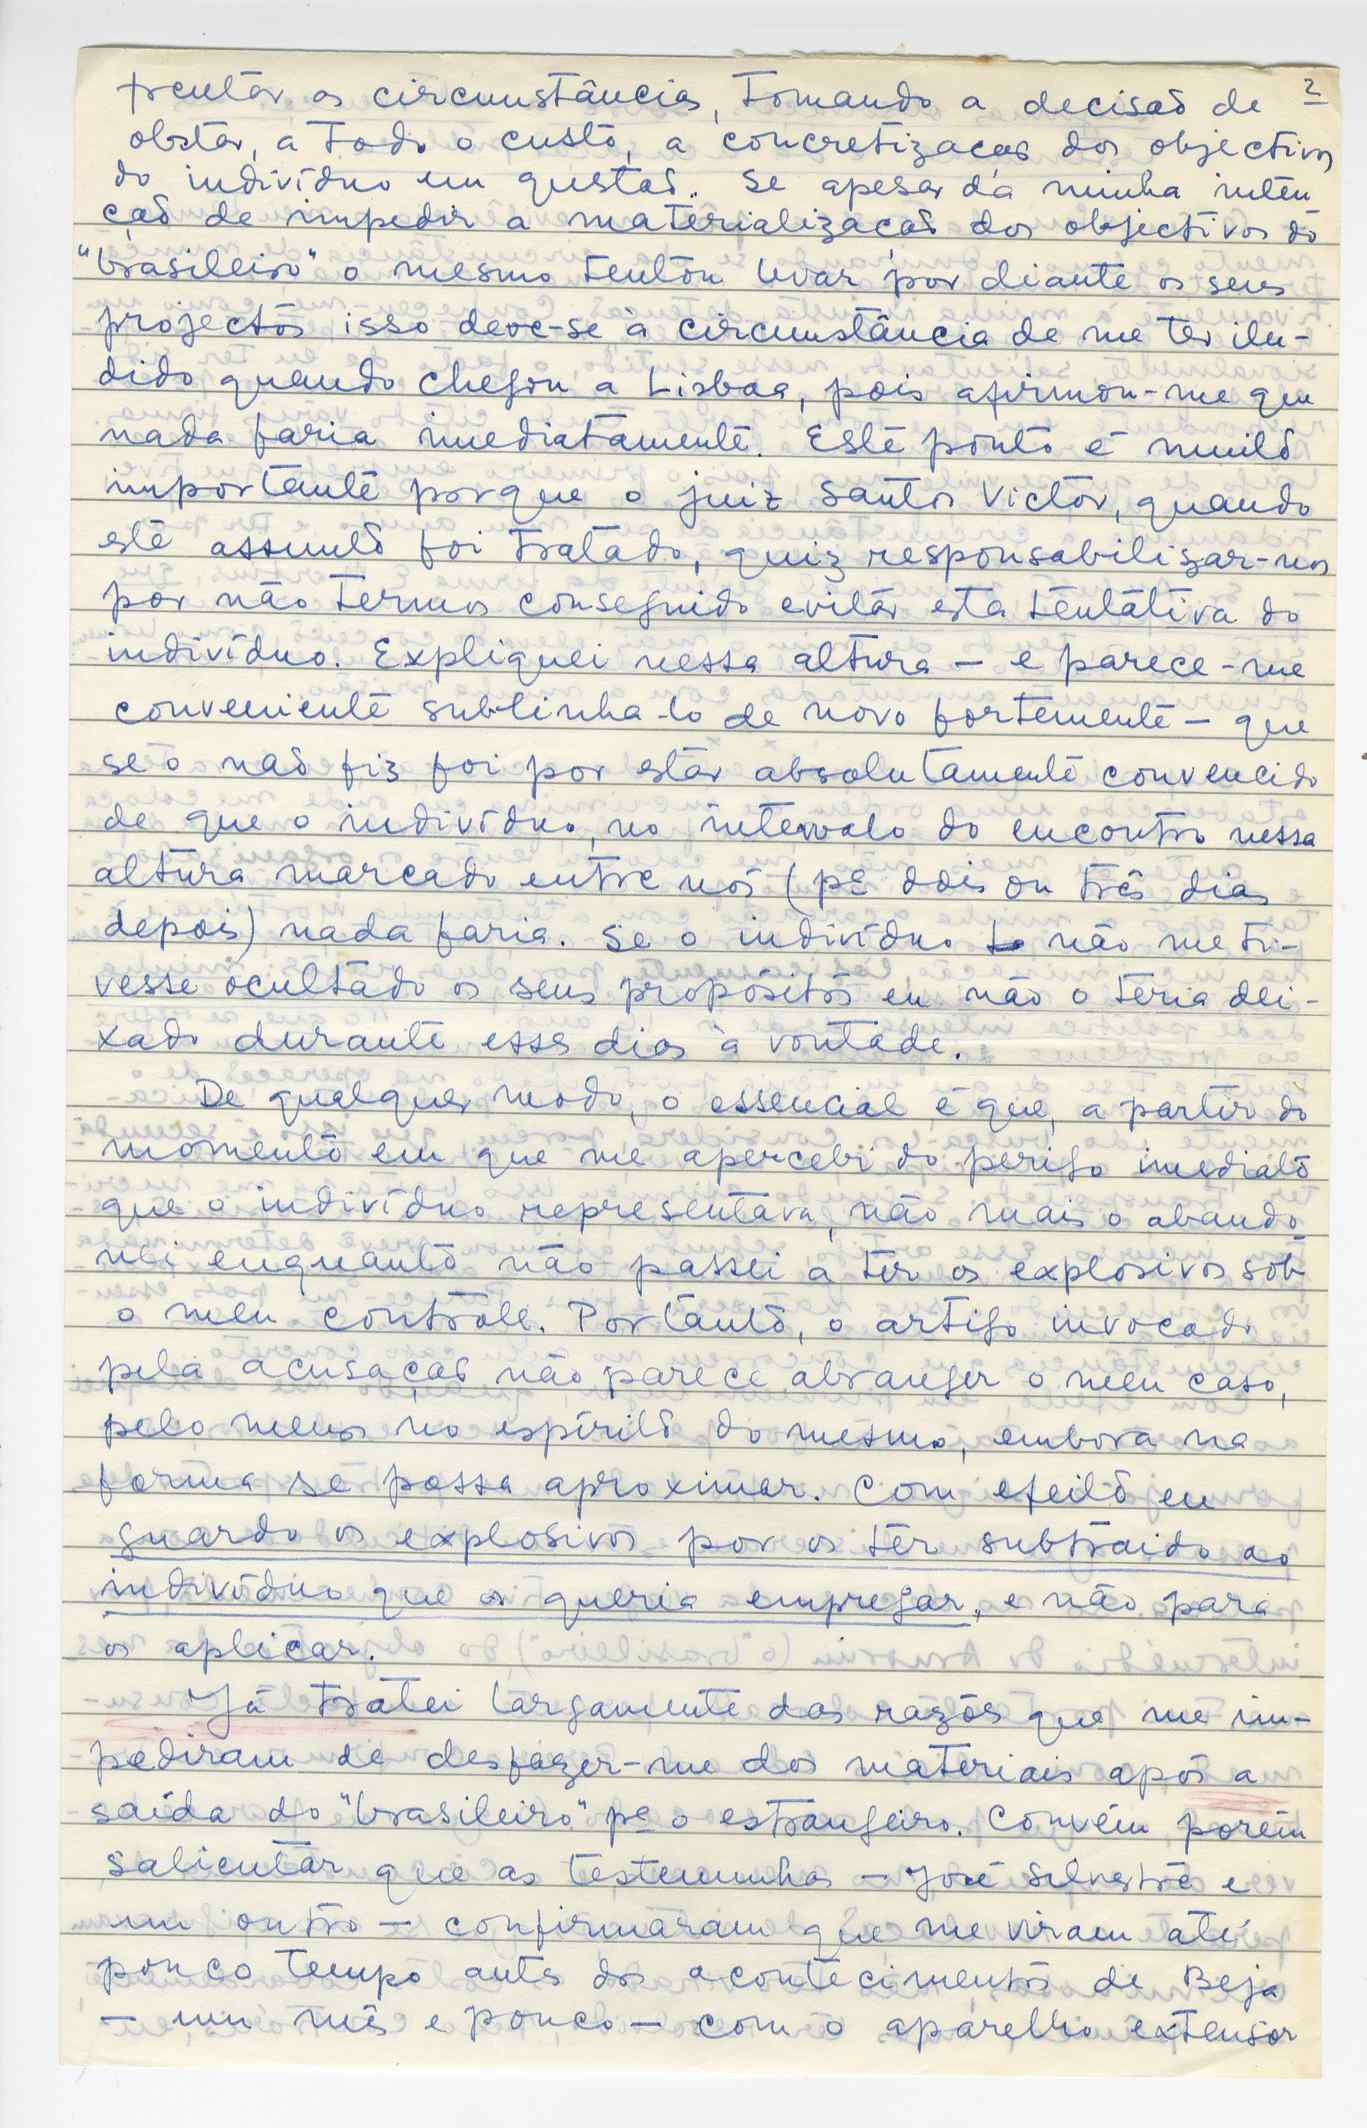 2
as circunstâncias, tomando a decisaõ de
obstar, a todo o custo, a concretizaçaõ dos objectivos
do indivíduo em questaõ. Se apesar da minha inten
çaõ de impedir a materializaçaõ dos objectivos do
"brasileiro" o mesmo tentou levar por diante os seus
projectos isso deve-se à circunstância de me ter ilu-
dido quando chegou a Lisboa, pois afirmou-me que
nada faria imediatamente. Este ponto é muito
importante porque o juiz Santos Victor, quando
este assunto foi tratado, quiz responsabilizar-nos
por não termos conseguido evitar esta tentativa do
indivíduo. Expliquei nessa altura – e parece-me
conveniente sublinha-lo de novo fortemente – que
se o naõ fiz foi por estar absolutamente convencido
de que o indivíduo, no intervalo do encontro nessa
altura marcado entre nós (pª dois ou três dias
depois) nada faria. Se o indivíduo não me ti-
vesse ocultado os seus propósitos eu não o teria dei-
xado durante esses dias à vontade.
De qualquer modo, o essencial é que, a partir do
momento em que me apercebi do perigo imediato
que o indivíduo representava, não mais o abando
nei enquanto não passei a ter os explosivos sob
o meu contrôle. Portanto, o artigo invocado
pela acusaçaõ não parece abranger o meu caso,
pelo menos no espírito do mesmo, embora na
forma se possa aproximar. Com efeito eu
guardo os explosivos por os ter subtraido ao
indivíduo que os queria empregar, e não para
os aplicar.
Já tratei largamente das razões que me im-
pediram de desfazer-me dos materiais após a
saída do "brasileiro" pª o estrangeiro. Convém porém
salientar que as testemunhas – José Silvestre e
um outro – confirmaram que me viram até
pouco tempo antes dos acontecimentos de Beja
– um mês e pouco – com o aparelho extensor